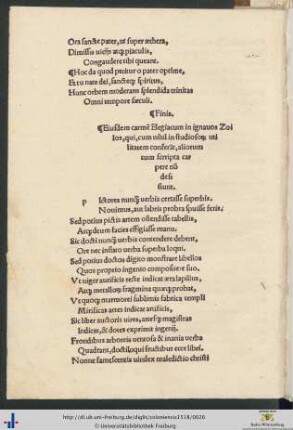 Ora sancte pater, ut super æthera,
Dimissis uicijs atq; piaculis,
Congaudere tibi queant.
¶Hoc da quod petitur o pater optime,
Et tu nate dei, sancteq; spiritus,
Hunc orbem moderans splendida trinitas
Omni tempore sæculi.
¶Finis.
¶Eiusdem carmẽ Elegiacum in ignauos Zoi
los, qui, cum nihil in studiosorũ uti
litatem conferãt, aliorum
tum scripta car
pere nõ
desi
stunt.
P Ictores nunq̃ uerbis certasse superbis.
Nouimus, aut labris probra fuisse feris:
Sed potius pictis artem ostendisse tabellis,
Atq; deum facies effigiasse manu.
Sic docti nunq̃ uerbis contendere debent,
Ore nec inflato uerba superba loqui.
Sed potius doctos digito monstrare libellos
Quos proprio ingenio composuere suo.
Ut niger aurifices recte indicat ira valius,
Atq; metallorũ fragmina quæq; probat,
Ut quoq; marmorei sublimis fabrica templi
Mirificas artes indicat artificis,
Sic liber auctoris uires, uerosq; magistras
Indicat, & dotes exprimit ingenij.
Frondibus arboreis uentosa & inania uerba
Quadrant, doctiloqui fructibus ecce libri.
Nonne fame scentis uindex maledictio christi
http://dl.ub.uni-freiburg.de/diglit/coloniensis1518/0026
© Universitätsbibliothek Freiburg